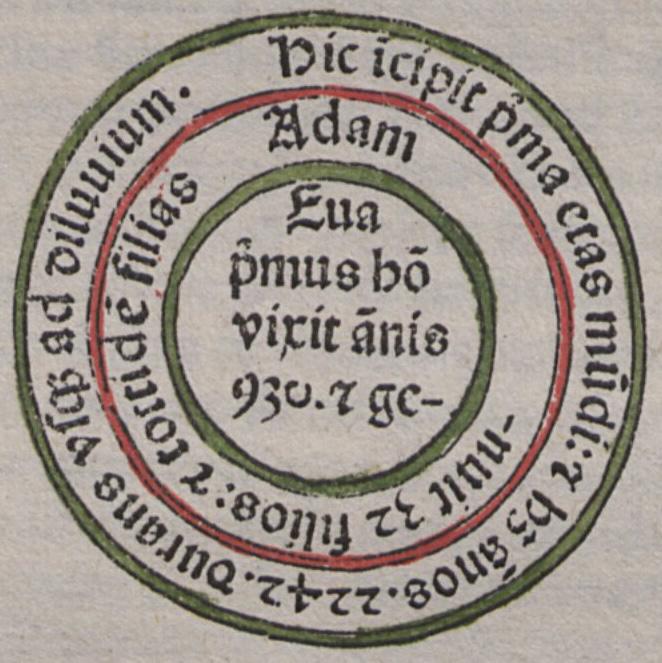 Hic īcipit p̄ma etas mūdi: ⁊ hꝫ ānos. 2242. durans vſqꝫ ad diluuium.
Adam
Eua
p̄mus hō
vixit ānis
930. ⁊ ge-
-nuit 32 filios: ⁊ totidē filias